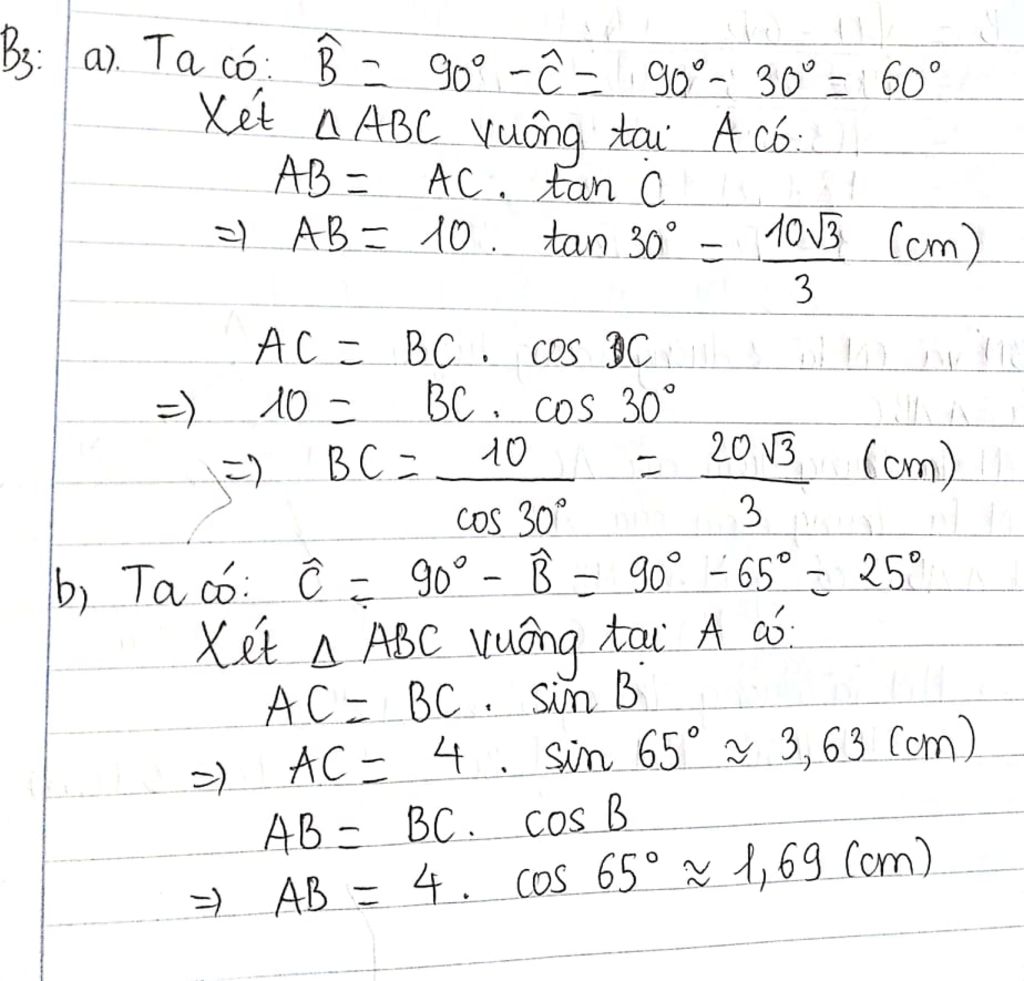 B3: a). Ta có: B̂ = 90° - Ĉ = 90° - 30° = 60°
Xét Δ ABC vuông tại A có:
AB = AC. tan C
=> AB = 10. tan 30° = 10√3/3 (cm)
AC = BC. cos C
=> 10 = BC. cos 30°
=> BC = 10/cos 30° = 20√3/3 (cm)
b) Ta có: Ĉ = 90° - B̂ = 90° - 65° = 25°
Xét Δ ABC vuông tại A có:
AC = BC. sin B
=> AC = 4. sin 65° ≈ 3,63 (cm)
AB = BC. cos B
=> AB = 4. cos 65° ≈ 1,69 (cm)